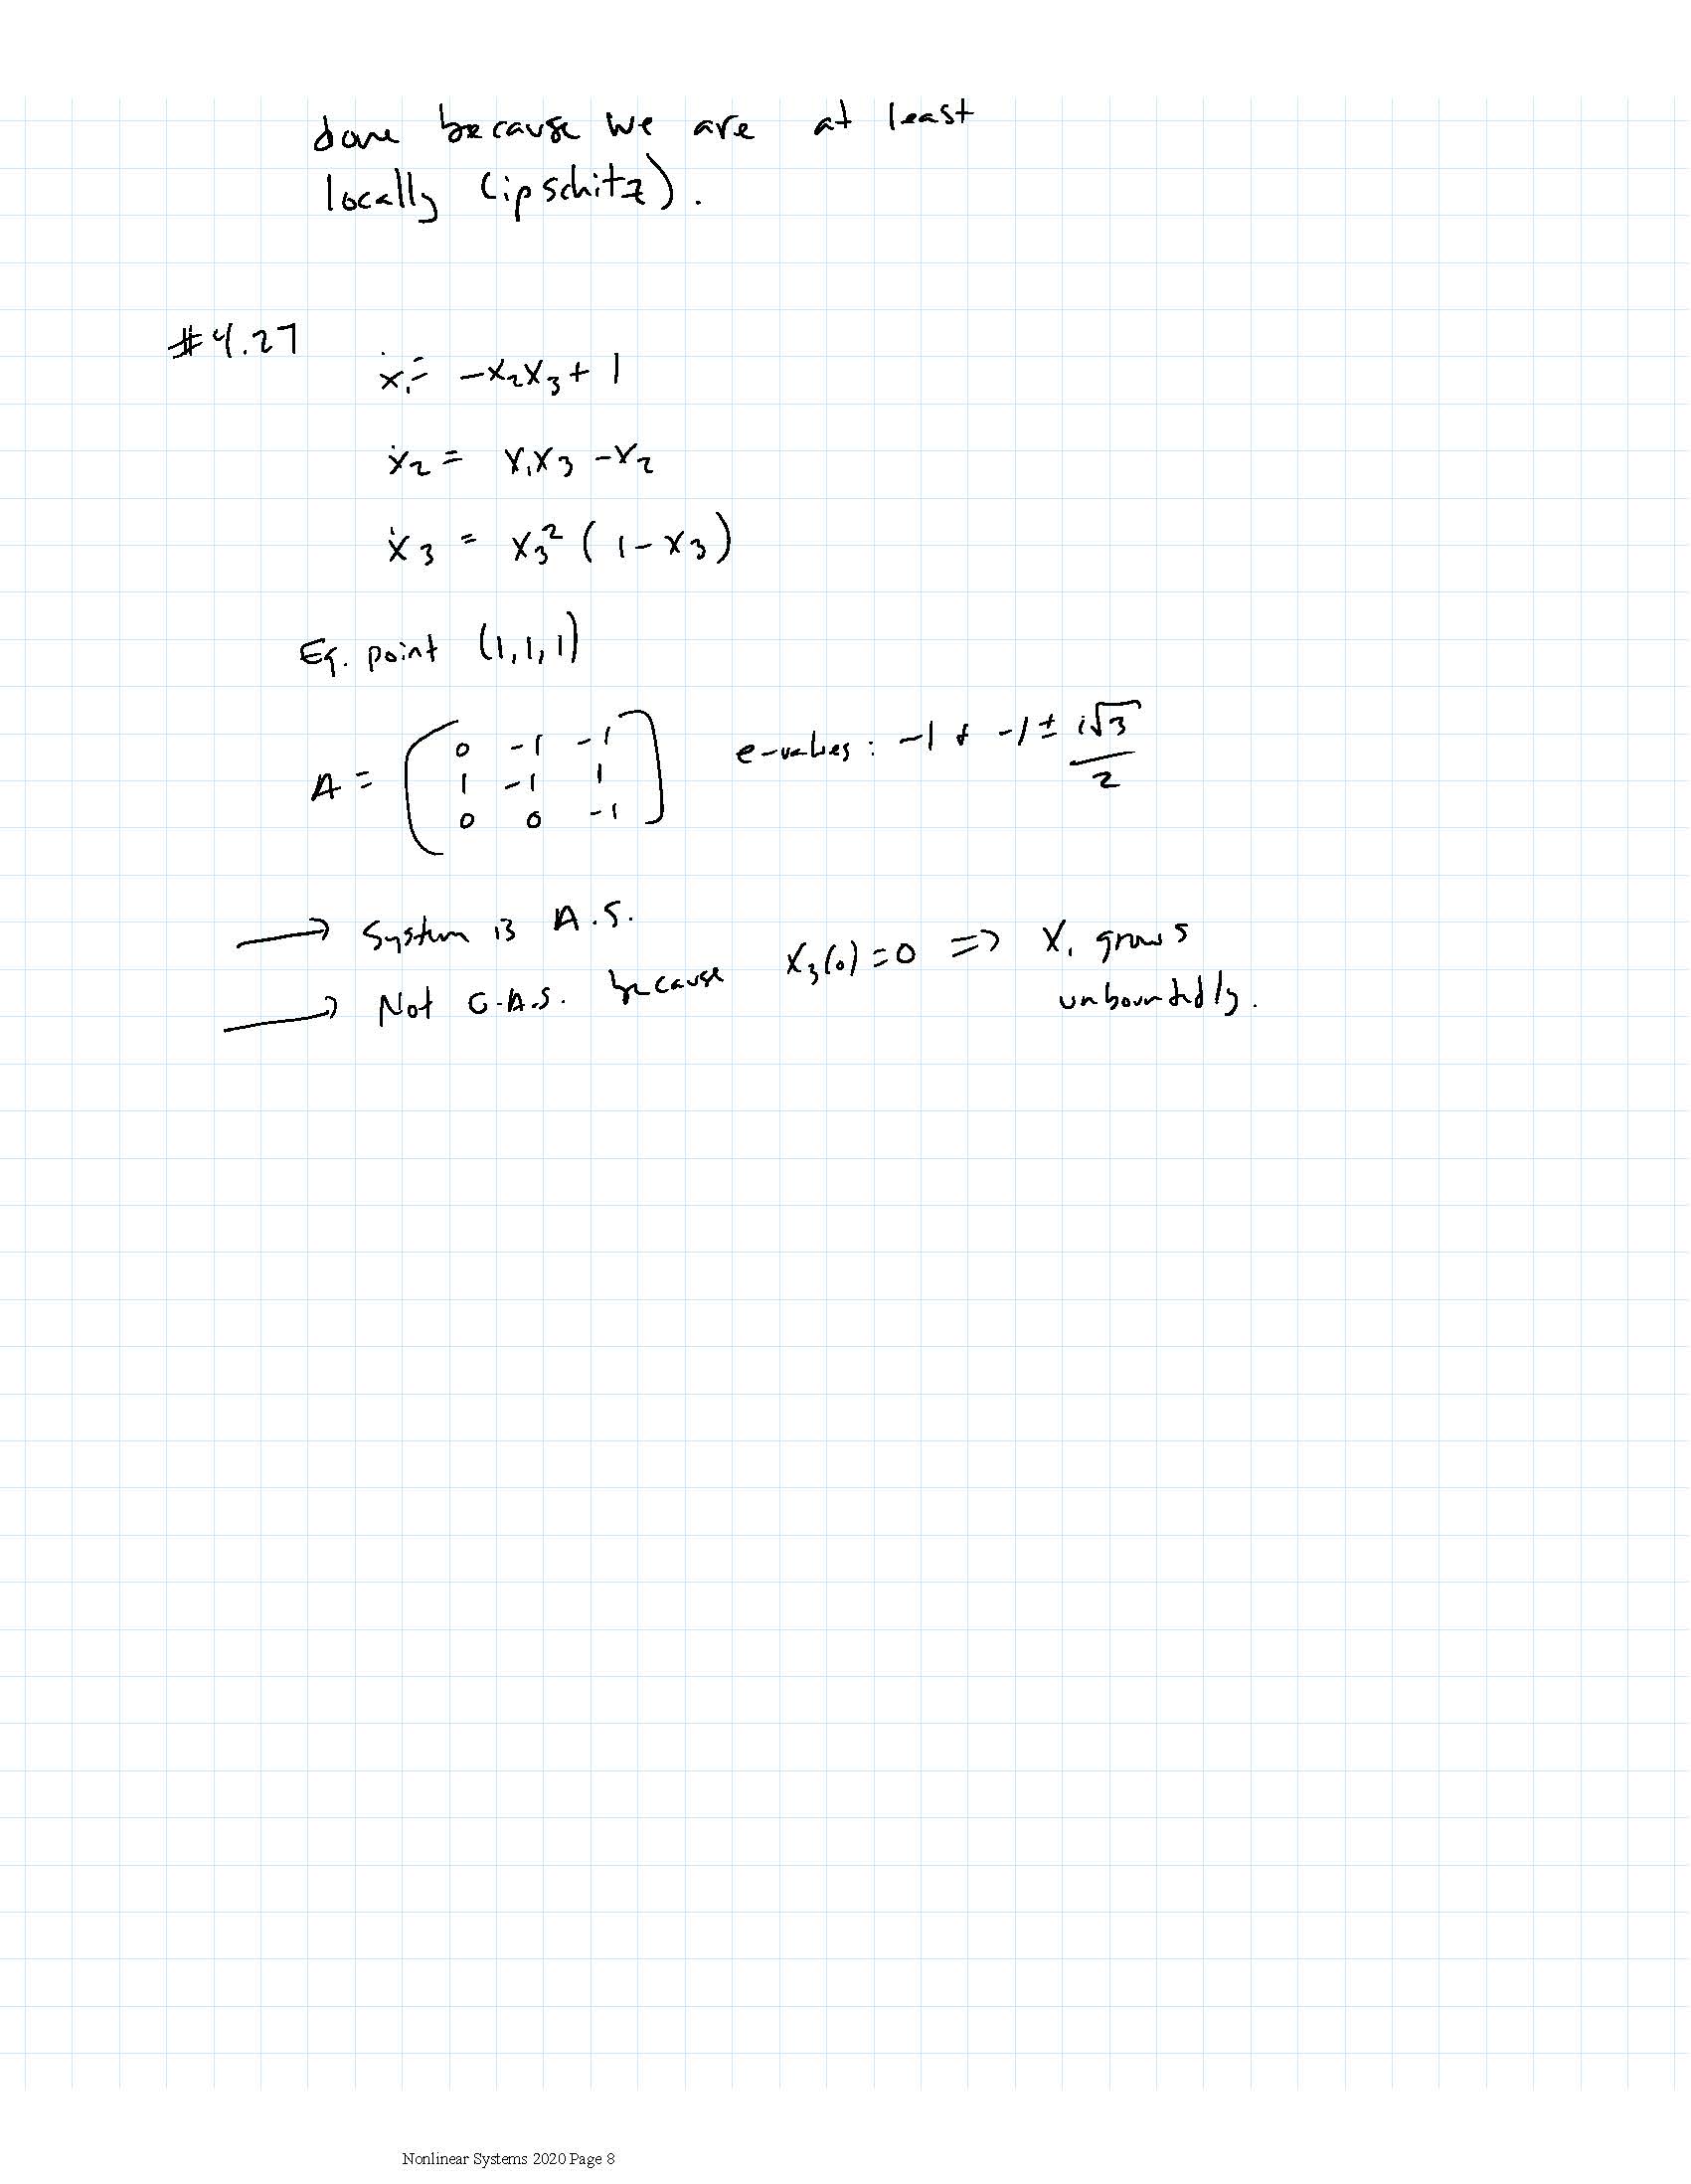 done because we are at least
locally Lipschitz).
#4.27
ẋ₁ = -x₂x₃ + 1
ẋ₂ = x₁x₃ - x₂
ẋ₃ = x₃² (1 - x₃)
Eq. point (1,1,1)
A = ( 0 -1 -1
1 -1 1
0 0 -1 ) e-values: -1 & -1 ± i√3 / 2
→ System is A.S.
→ Not G.A.S. because x₃(0) = 0 ⇒ x₁ grows
unboundedly.
Nonlinear Systems 2020 Page 8